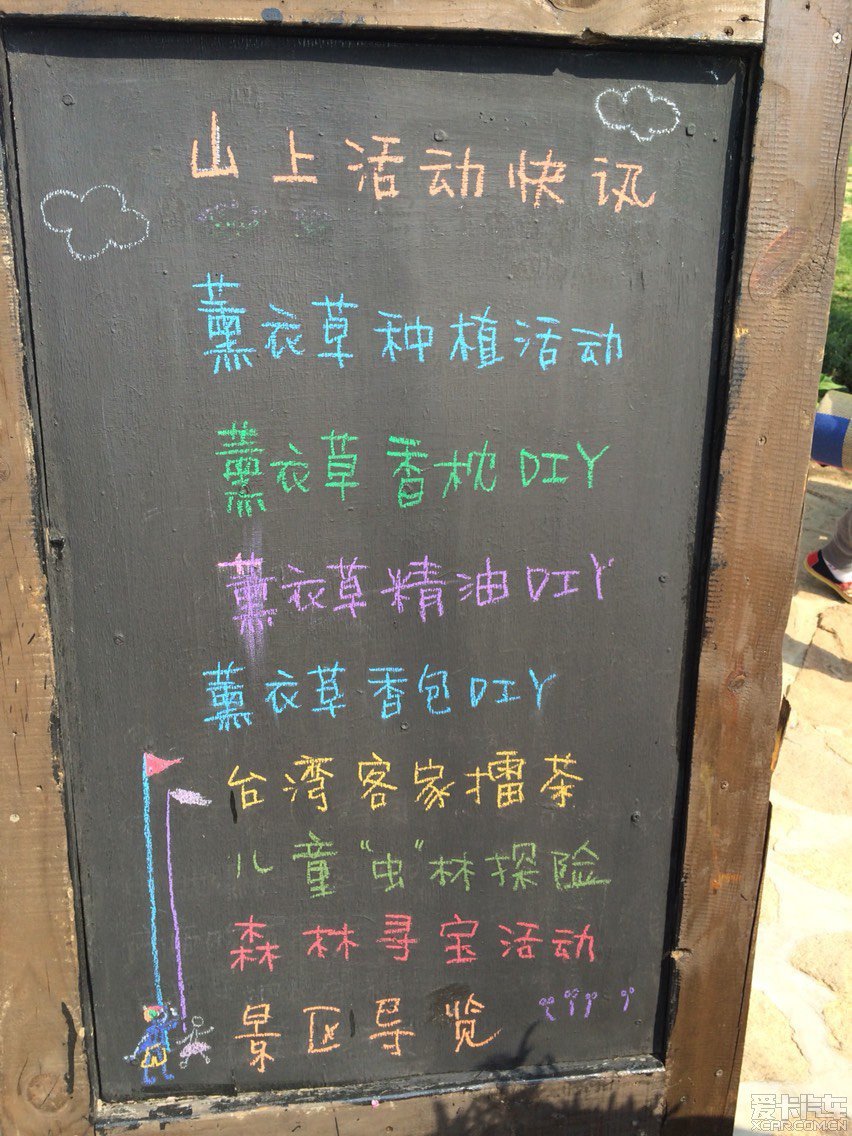 山上活动快讯
薰衣草种植活动
薰衣草香枕DIY
薰衣草精油DIY
薰衣草香包DIY
台湾客家擂茶
儿童"虫"林探险
森林寻宝活动
景区导览
爱卡汽车
XCAR.COM.CN